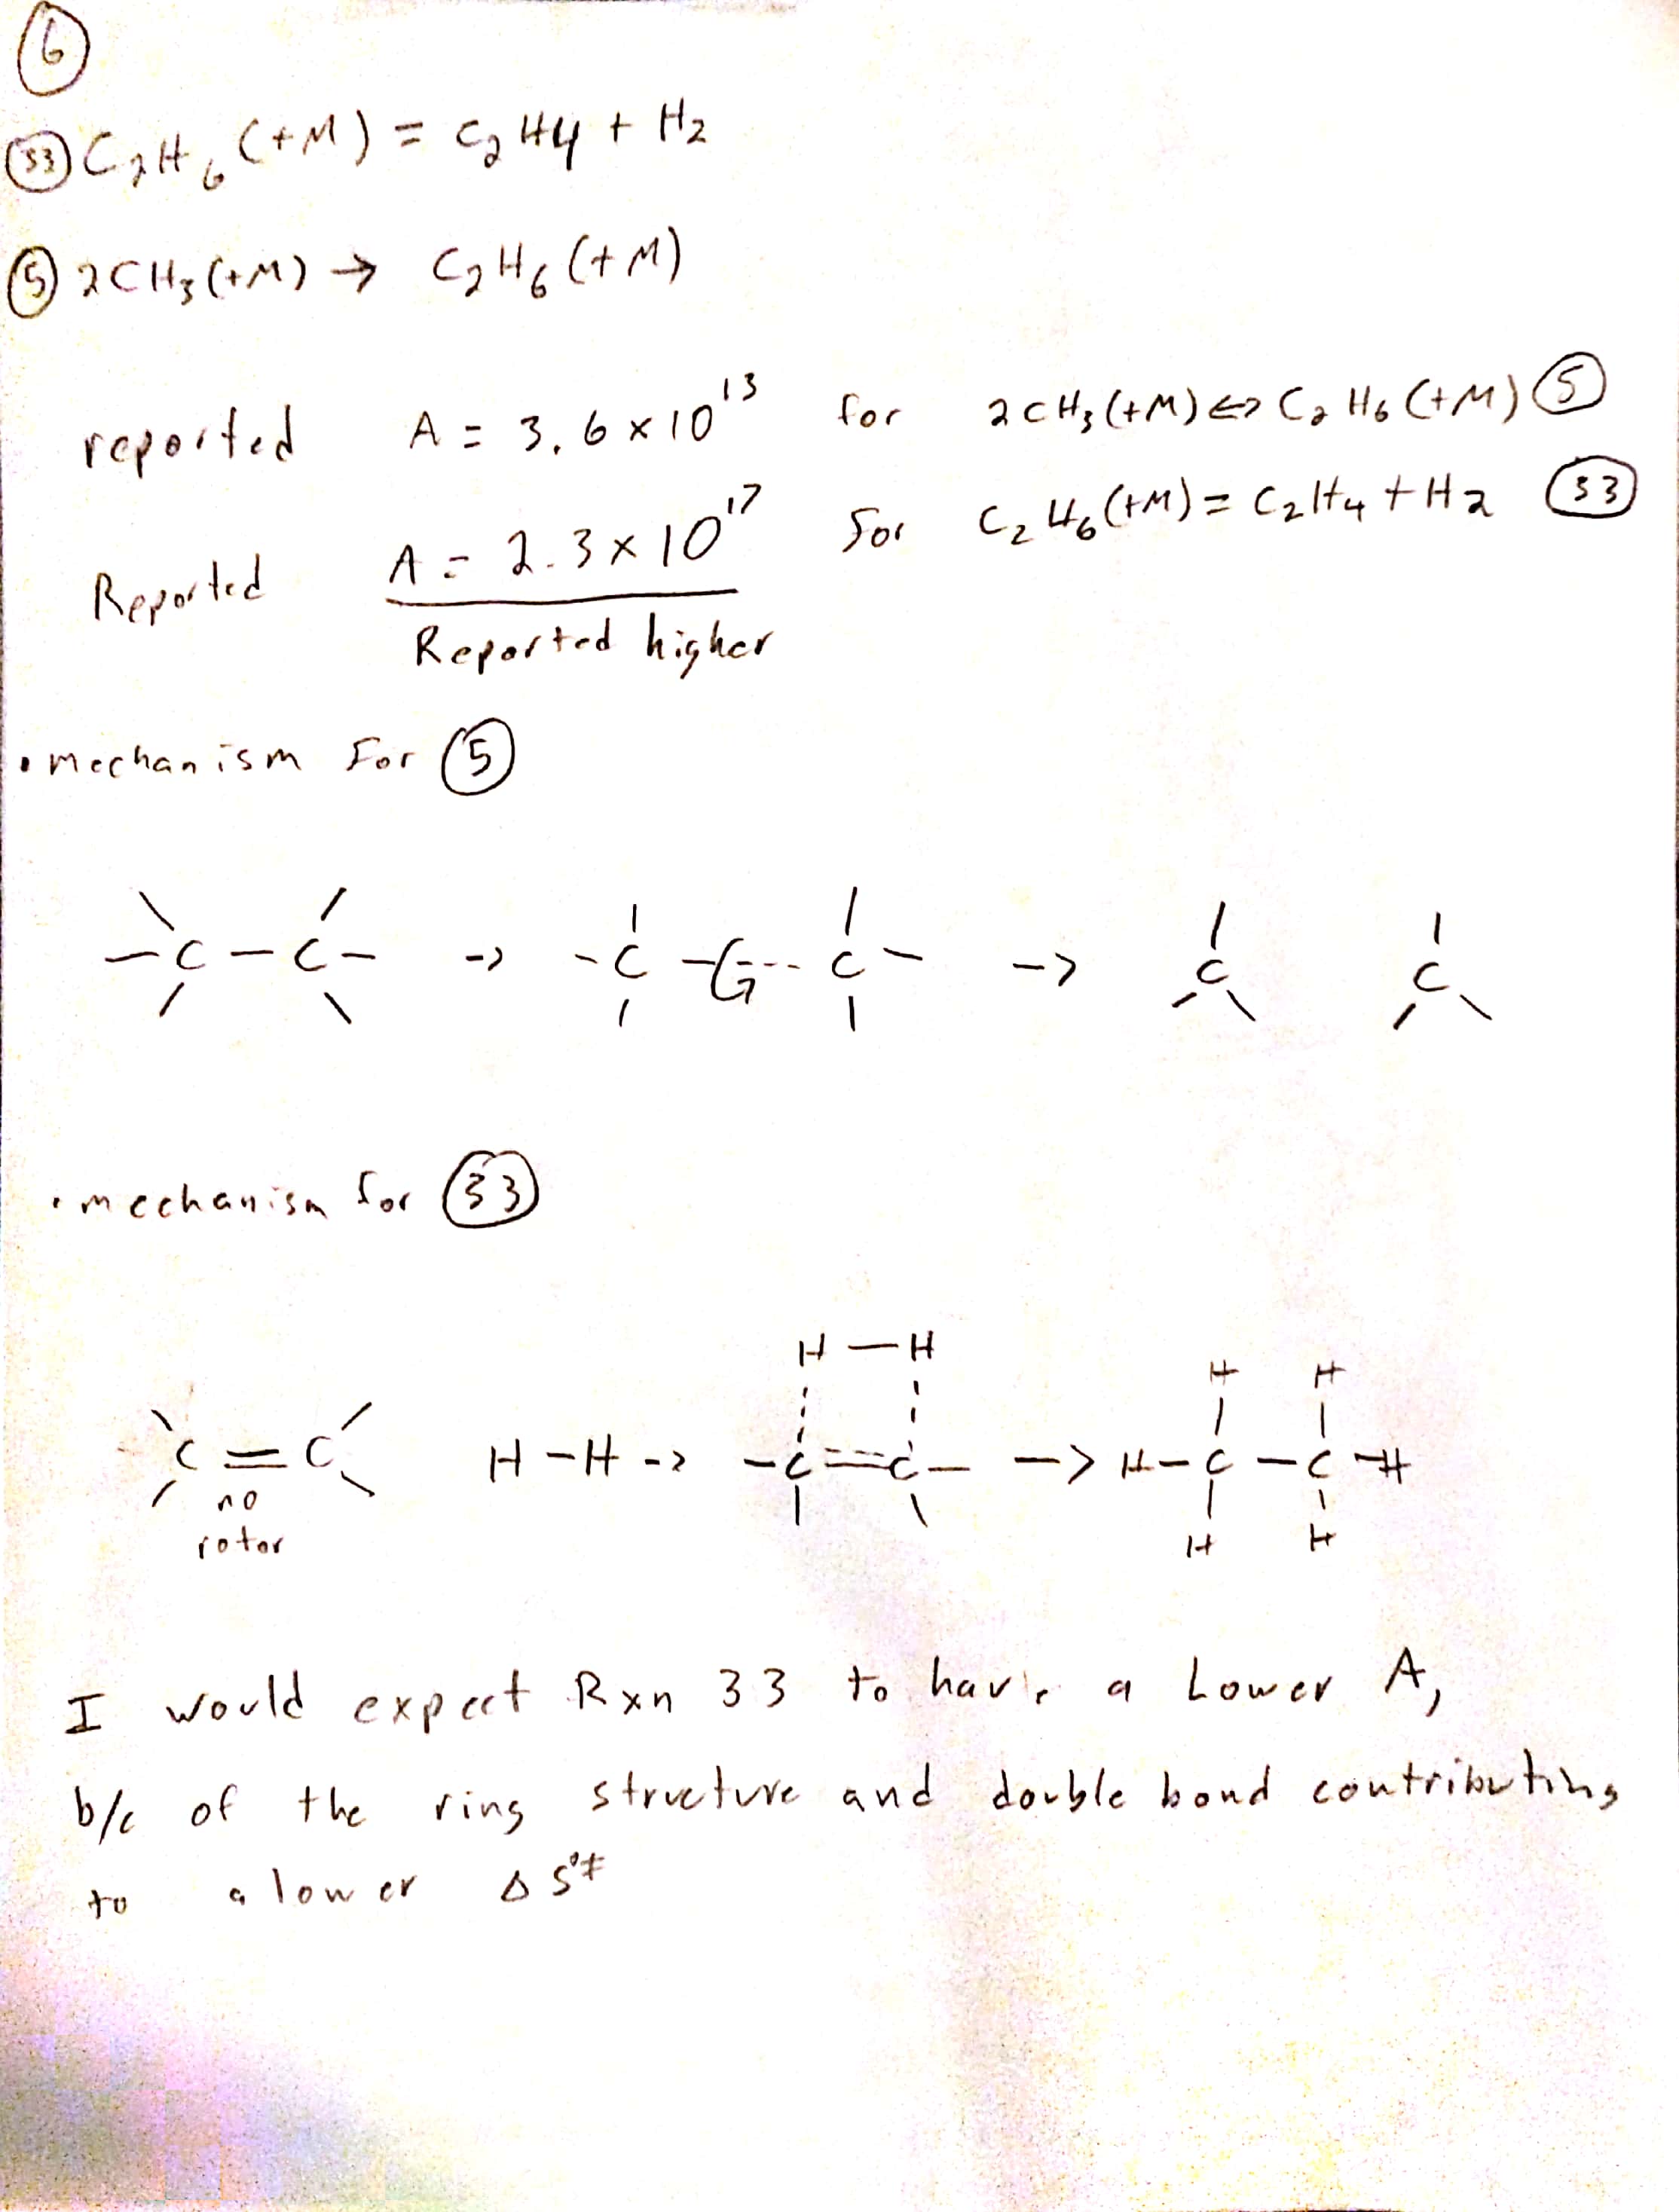 6
33 C2H6 (+M) = C2H4 + H2
5 2CH3(+M) → C2H6(+M)
reported A = 3.6 x 10^13 for 2CH3(+M) <=> C2H6(+M) 5
Reported A = 2.3 x 10^17 for C2H6(+M) = C2H4 + H2 33
Reported higher
• mechanism for 5
C - C -> - C - G - - - C - -> C C
• mechanism for 33
H - H
H H
C = C H - H -> - C = = = C - -> H - C - C - H
no
rotor
H H
I would expect Rxn 33 to have a Lower A,
b/c of the ring structure and double bond contributing
to a lower Δ S°‡